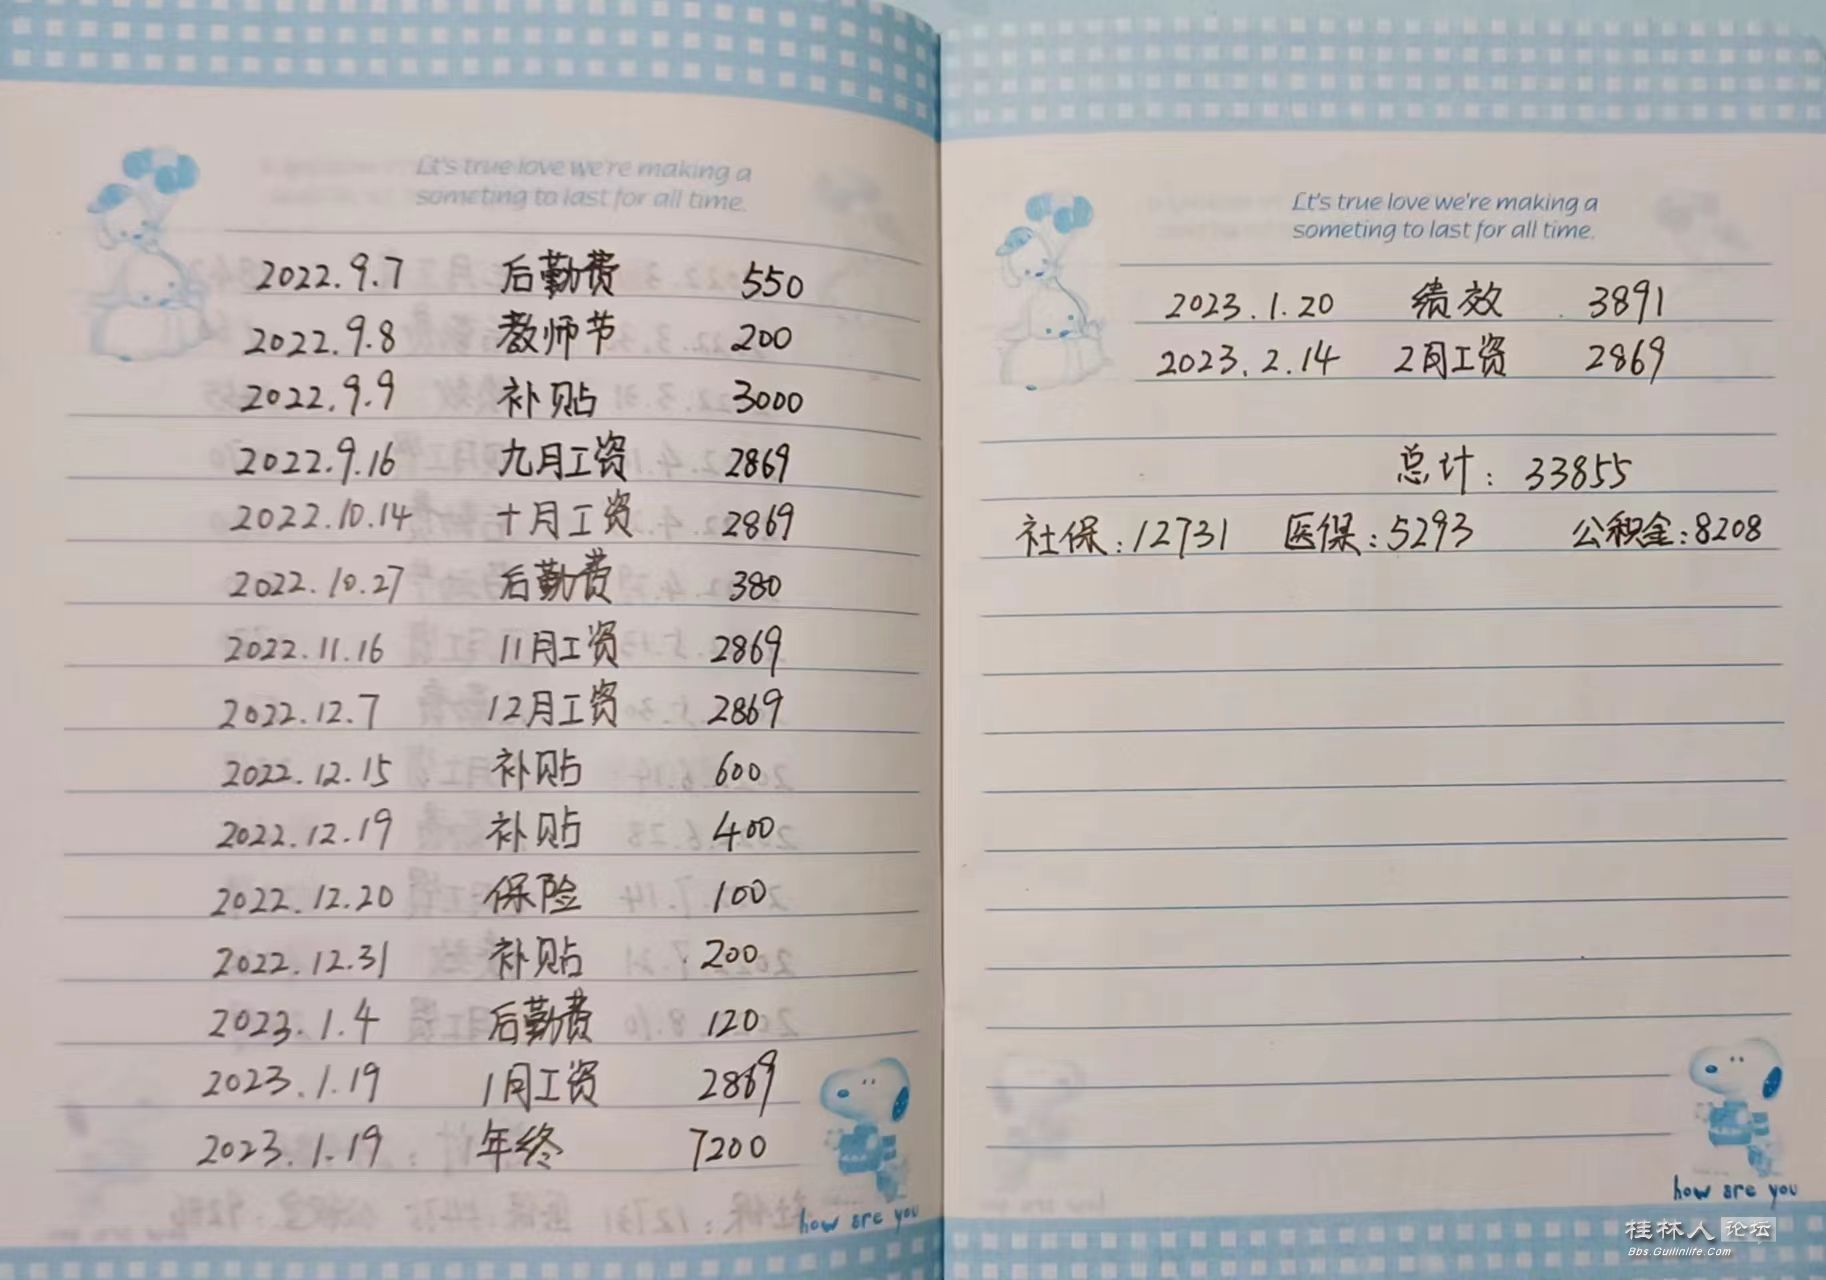 Lt's true love we're making a
someting to last for all time.
2022.9.7 后勤费 550
2022.9.8 教师节 200
2022.9.9 补贴 3000
2022.9.16 九月工资 2869
2022.10.14 十月工资 2869
2022.10.27 后勤费 380
2022.11.16 11月工资 2869
2022.12.7 12月工资 2869
2022.12.15 补贴 600
2022.12.19 补贴 400
2022.12.20 保险 100
2022.12.31 补贴 200
2023.1.4 后勤费 120
2023.1.19 1月工资 2869
2023.1.19 年终 7200
how are you
Lt's true love we're making a
someting to last for all time.
2023.1.20 绩效 3891
2023.2.14 2月工资 2869
总计：33855
社保：12731 医保：5293 公积金：8208
how are you
桂林人论坛
Bbs.Guilinlife.Com